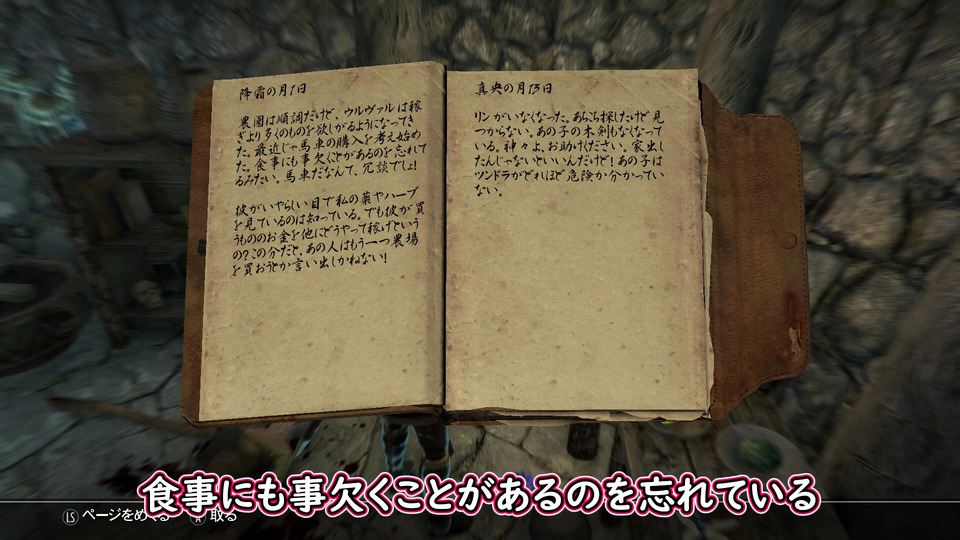 降霜の月1日
農園は順調だけど、ウルヴァルは稼
ぎより多くのものを欲しがるようになってき
た。最近じゃ馬車の購入を考え始め
た。食事にも事欠くことがあるのを忘れて
るみたい。馬車だなんて、冗談でしょ!
彼がいやらしい目で私の薬やハーブ
を見ているのは知っている。でも彼が買
うもののお金を他にどうやって稼げという
の?この分だと、あの人はもう一つ農場
を買おうとか言い出しかねない!
真央の月13日
リンがいなくなった。あちこち探したけど見
つからない。あの子の木剣もなくなって
いる。神々よ、お助けください。家出し
たんじゃないといいんだけど!あの子は
ツンドラがどれほど危険か分かってい
ない。
食事にも事欠くことがあるのを忘れている
LS ページをめくる A 取る